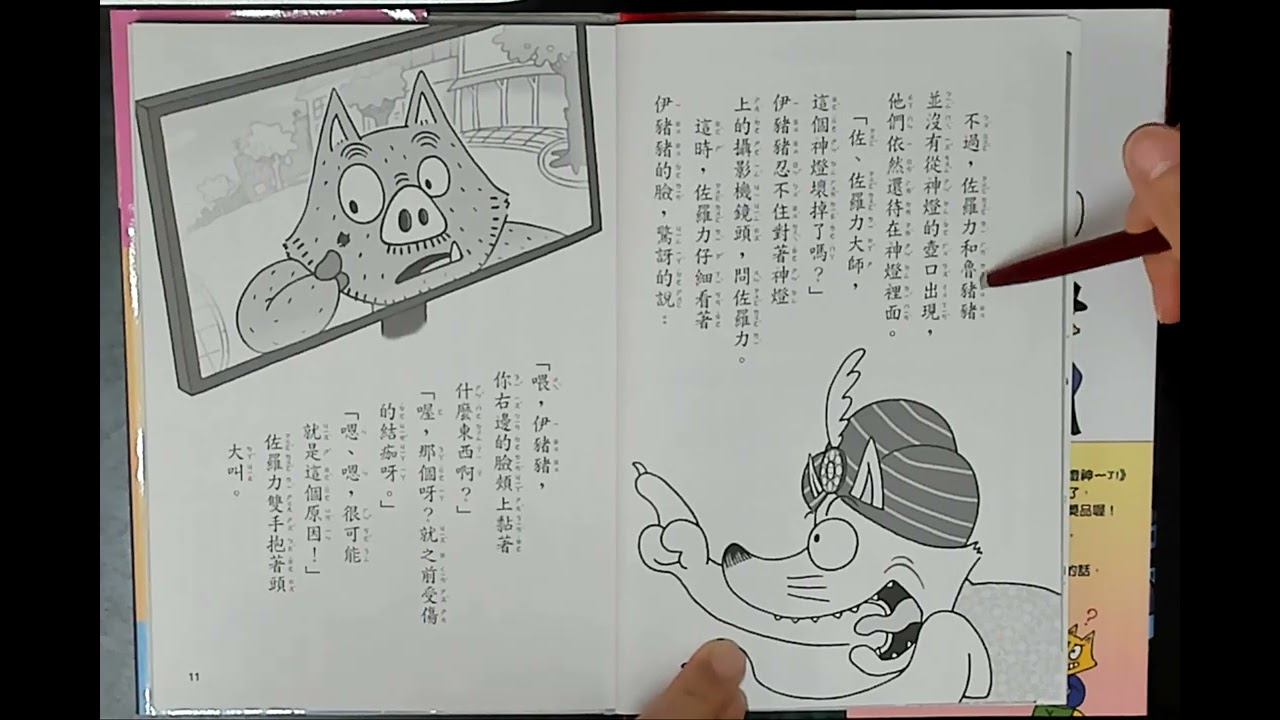 不過，佐羅力和魯豬豬
並沒有從神燈的壺口出現，
他們依然還待在神燈裡面。
「佐、佐羅力大師，
這個神燈壞掉了嗎？」
伊豬豬忍不住對著神燈
上的攝影機鏡頭，問佐羅力。
這時，佐羅力仔細看著
伊豬豬的臉，驚訝的說：
「喂，伊豬豬，
你右邊的臉頰上黏著
什麼東西啊？」
「喔，那個呀？就之前受傷
的結痂呀。」
「嗯、嗯，很可能
就是這個原因！」
佐羅力雙手抱著頭
大叫。
11
燈神～了!》
了，
獎品喔！
的話，
?